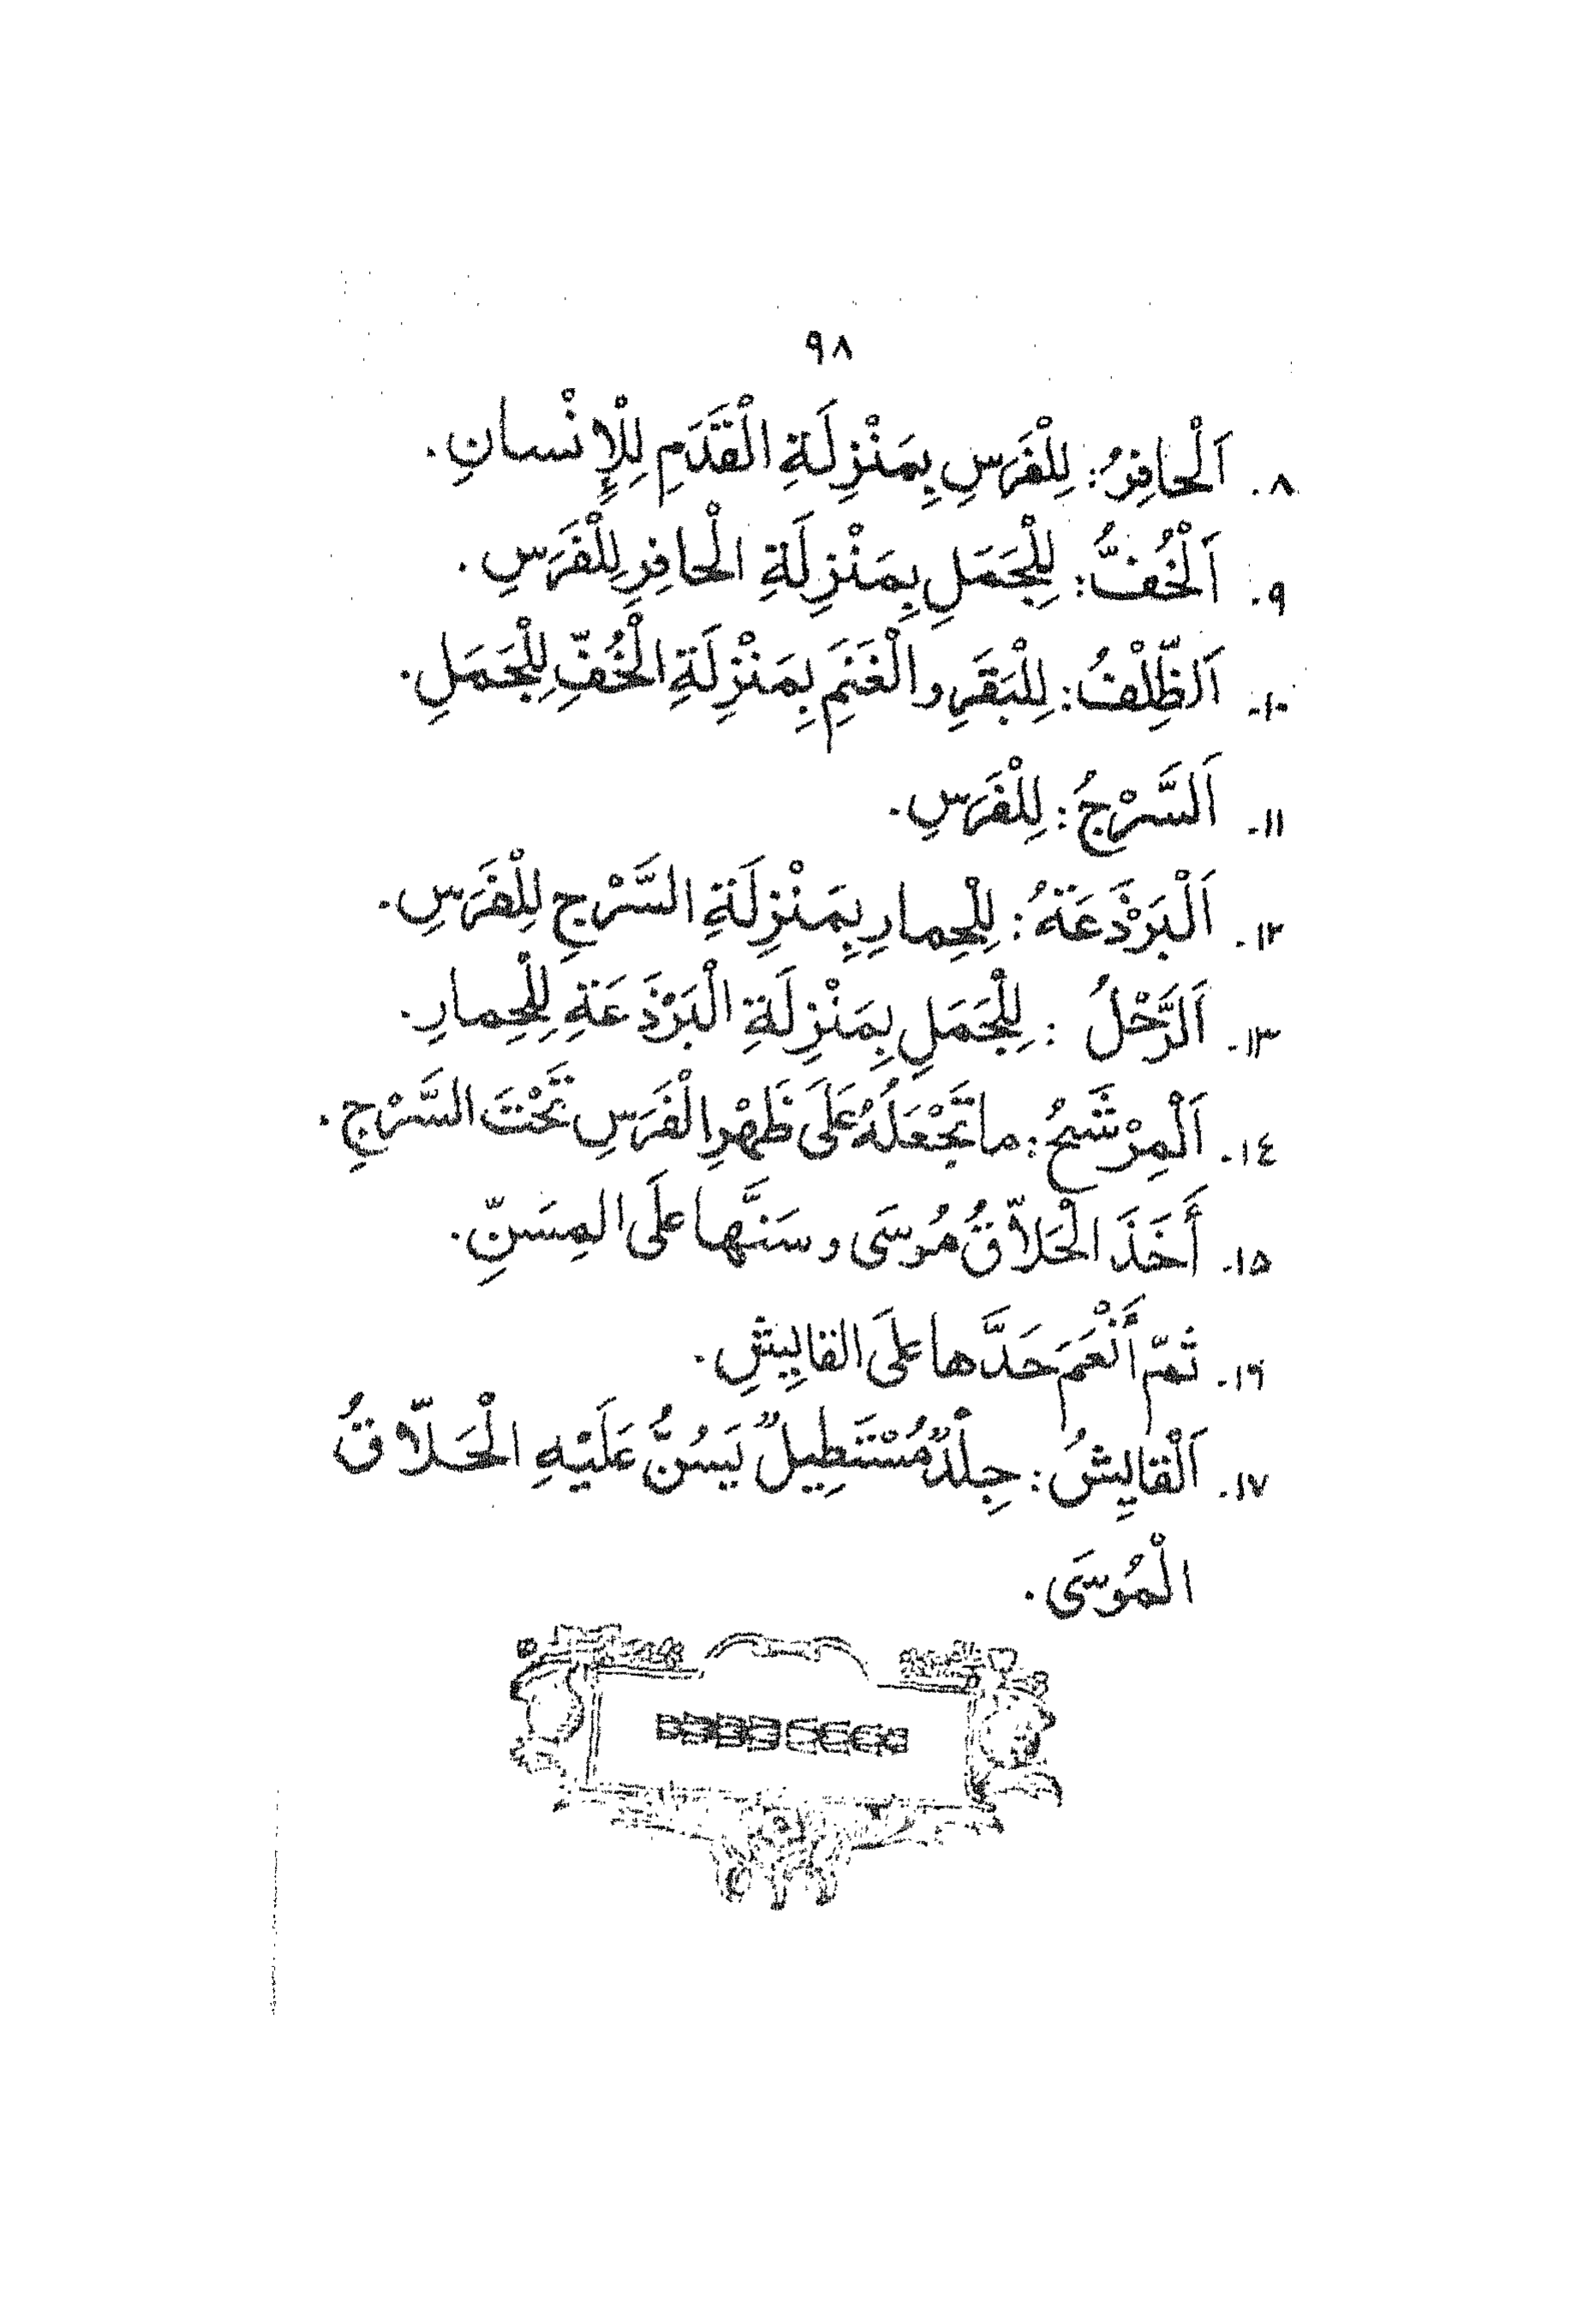 ٩٨
٨. اَلْحافِرُ: لِلْفَرَسِ بِمَنْزِلَةِ الْقَدَمِ لِلْإِنْسانِ.
٩. اَلْخُفُّ: لِلْجَمَلِ بِمَنْزِلَةِ الْحافِرِ لِلْفَرَسِ.
١٠. اَلظِّلْفُ: لِلْبَقَرِ والْغَنَمِ بِمَنْزِلَةِ الْخُفِّ لِلْجَمَلِ.
١١. اَلسَّرْجُ: لِلْفَرَسِ.
١٢. اَلْبَرْذَعَةُ: لِلْحِمارِ بِمَنْزِلَةِ السَّرْجِ لِلْفَرَسِ.
١٣. اَلرَّحْلُ : لِلْجَمَلِ بِمَنْزِلَةِ الْبَرْذَعَةِ لِلْحِمارِ.
١٤. اَلْمِرْشَحُ: ما تَجْعَلُهُ عَلَى ظَهْرِ الْفَرَسِ تَحْتَ السَّرْجِ.
١٥. أَخَذَ الْحَلاّقُ مُوسَى وسَنَّها علَى المِسَنِّ.
١٦. ثمّ أَنْعَمَ حَدَّها علَى القايِيشِ.
١٧. اَلْقايِيشُ: جِلْدٌ مُسْتَطِيلٌ يَسُنُّ عَلَيْهِ الْحَلاّقُ
الْمُوسَى.